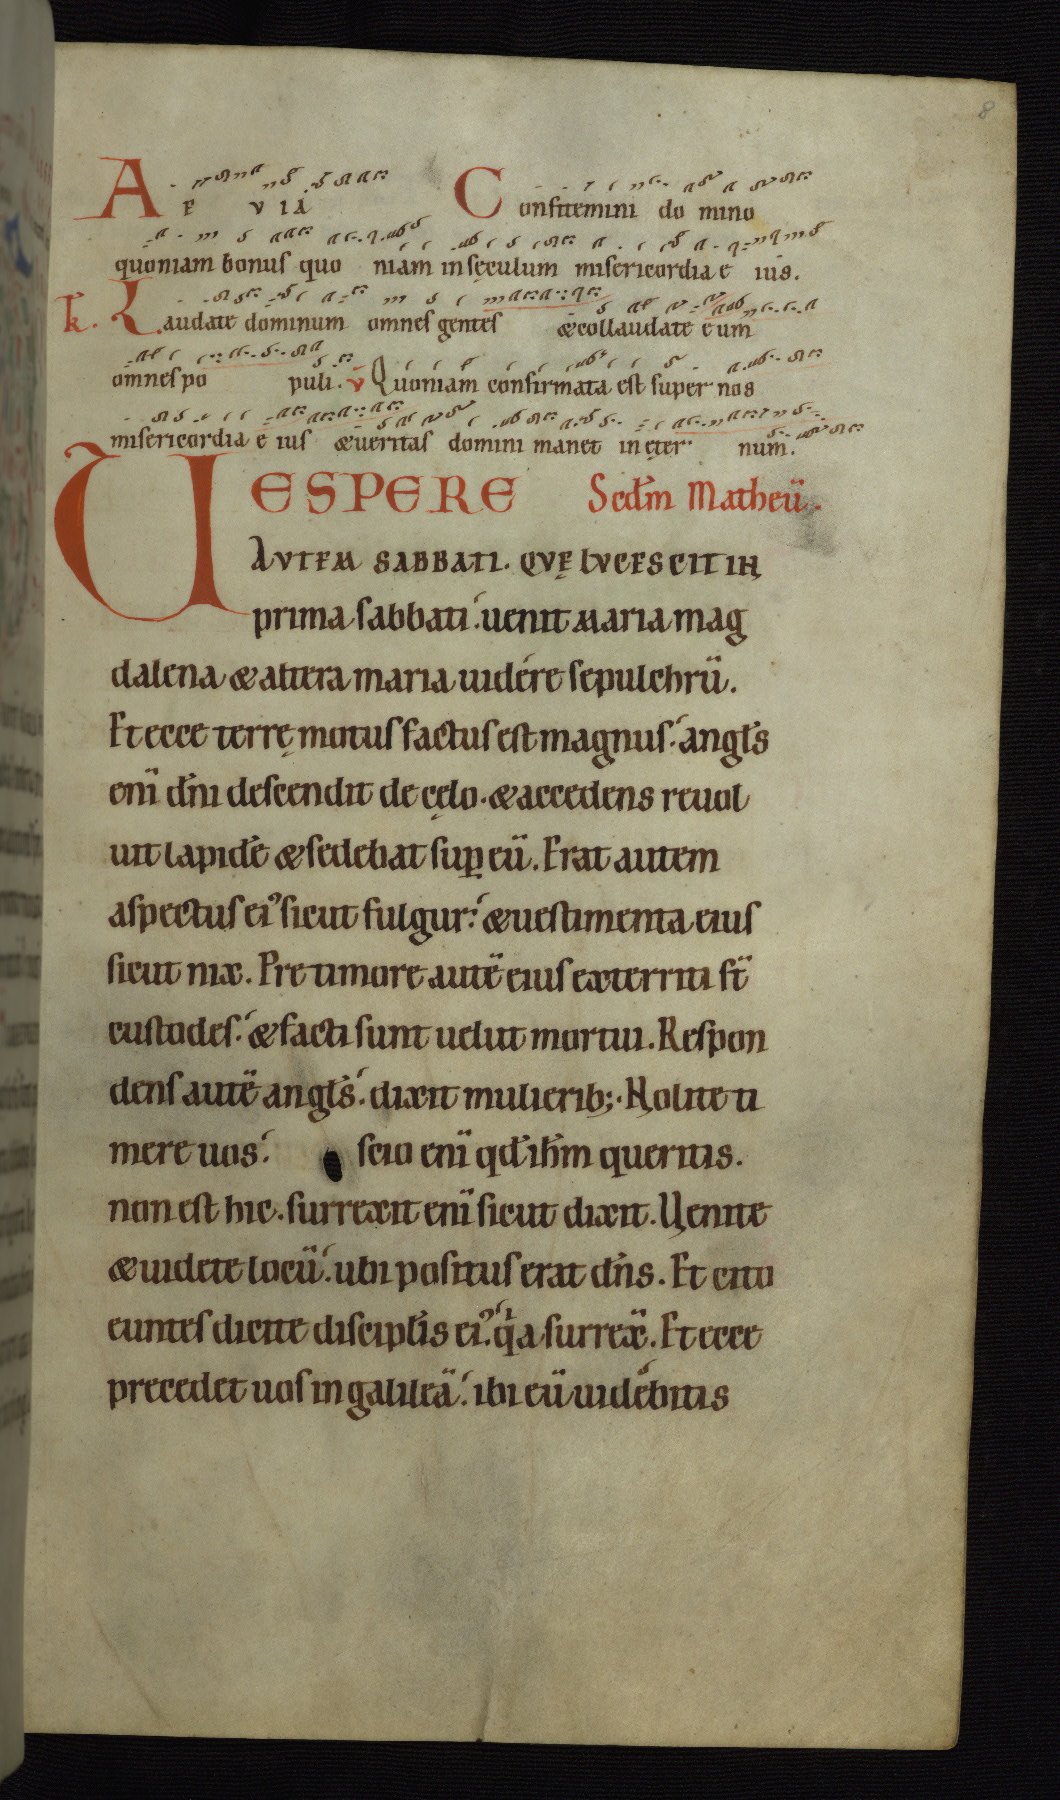 8
A E V I A C onfitemini do mino
quoniam bonus quo niam in sęculum misericordia e ius.
k. Laudate dominum omnes gentes & collaudate e um
omnes po puli. v Quoniam confirmata est super nos
misericordia e ius & ueritas domini manet in ęter num.
VESPERE Scd̄m Matheū.
AVTEM SABBATI. QVĘ LVCESCIT IN
prima sabbati. uenit maria mag
dalena & altera maria uidere sepulchrū.
Et ecce terrę motus factus est magnus. angl̄s
enī dn̄i descendit de cęlo. & accedens reuol
uit lapidē & sedebat sup̱ eū. Erat autem
aspectus ei᾿ sicut fulgur. & uestimenta eius
sicut nix. Pre timore autē eius exterriti st̄
custodes. & facti sunt uelut mortui. Respon
dens autē angl̄s. dixit mulierib;. Nolite ti
mere uos. scio enī qd̄ ih̄m queritis.
non est hic. surrexit enī sicut dixit. Uenite
& uidete locū. ubi positus erat dn̄s. Et cito
euntes dicite discipl̄is ei᾿. qͥa surrex̄. Et ecce
precedet uos in galileā. ibi eū uidebitis